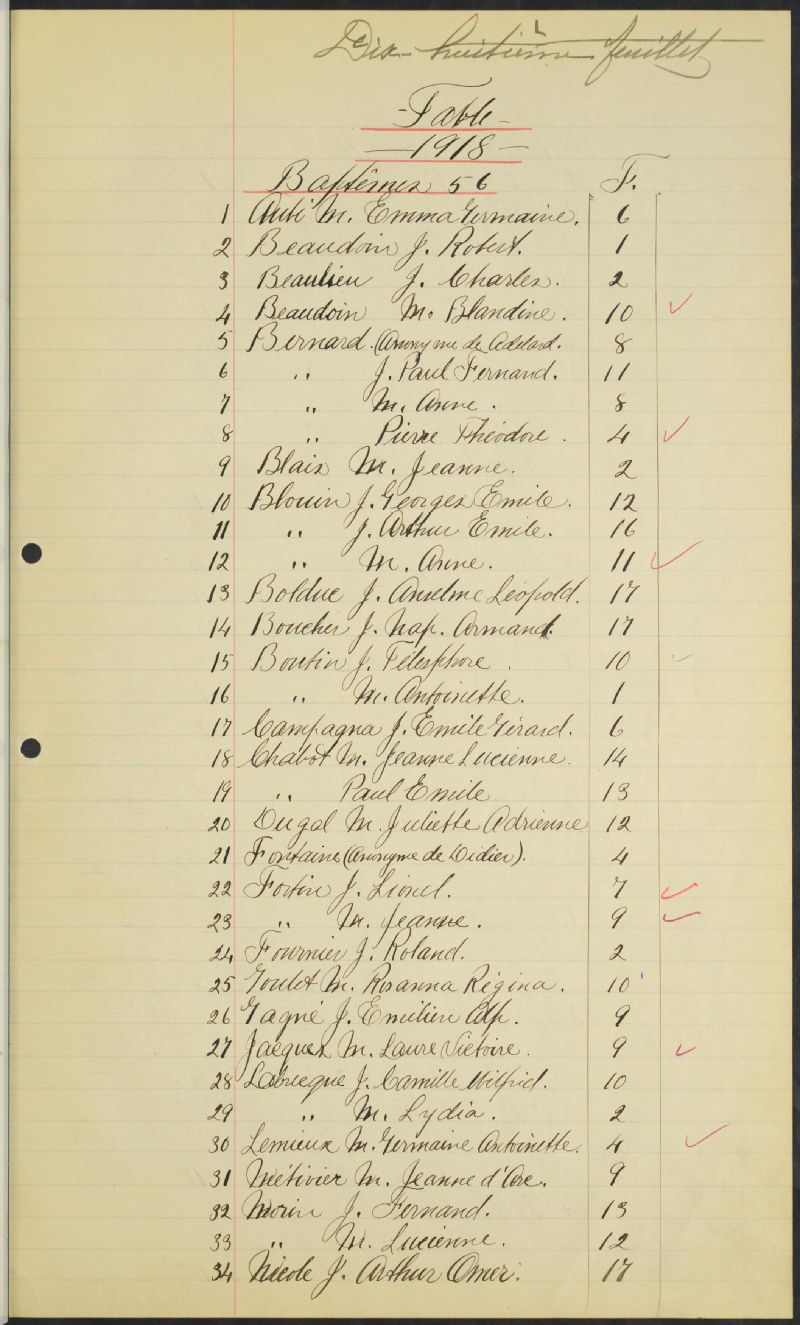 Dix-huitième feuillet
-Table-
-1918-
Baptêmes 56 F.
1 M. Emma Germaine. 6
2 Beaudoin J. Robert. 1
3 Beaulieu J. Charles. 2
4 Beaudoin M. Blandine. 10
5 Bernard (Anonyme de Adelard. 8
6 " J. Paul Fernand. 11
7 " M. Anne. 8
8 " Pierre Théodore. 4
9 Blais M. Jeanne. 2
10 Blouin J. Georges Emile. 12
11 " J. Arthur Emile. 16
12 " M. Anne. 11
13 Bolduc J. Anselme Léopold. 17
14 Boucher J. Nap. Armand. 17
15 Boutin J. Télesphore. 10
16 " M. Antoinette. 1
17 Campagna J. Emile Gérard. 6
18 Chabot M. Jeanne Lucienne. 14
19 " Paul Emile 13
20 Dugal M. Juliette Adrienne 12
21 Fontaine (Anonyme de Didier). 4
22 Fortin J. Lionel. 7
23 " M. Jeanne. 9
24 Fournier J. Roland. 2
25 Goulet M. Rosanna Régina. 10
26 Gagné J. Emilien Alp. 9
27 Jacques M. Laure Victoire. 9
28 Labrecque J. Camille Wilfrid. 10
29 " M. Lydia. 2
30 Lemieux M. Germaine Antoinette. 4
31 Métivier M. Jeanne d'Arc. 9
32 Morin J. Fernand. 13
33 " M. Lucienne. 12
34 Nicole J. Arthur Omer. 17